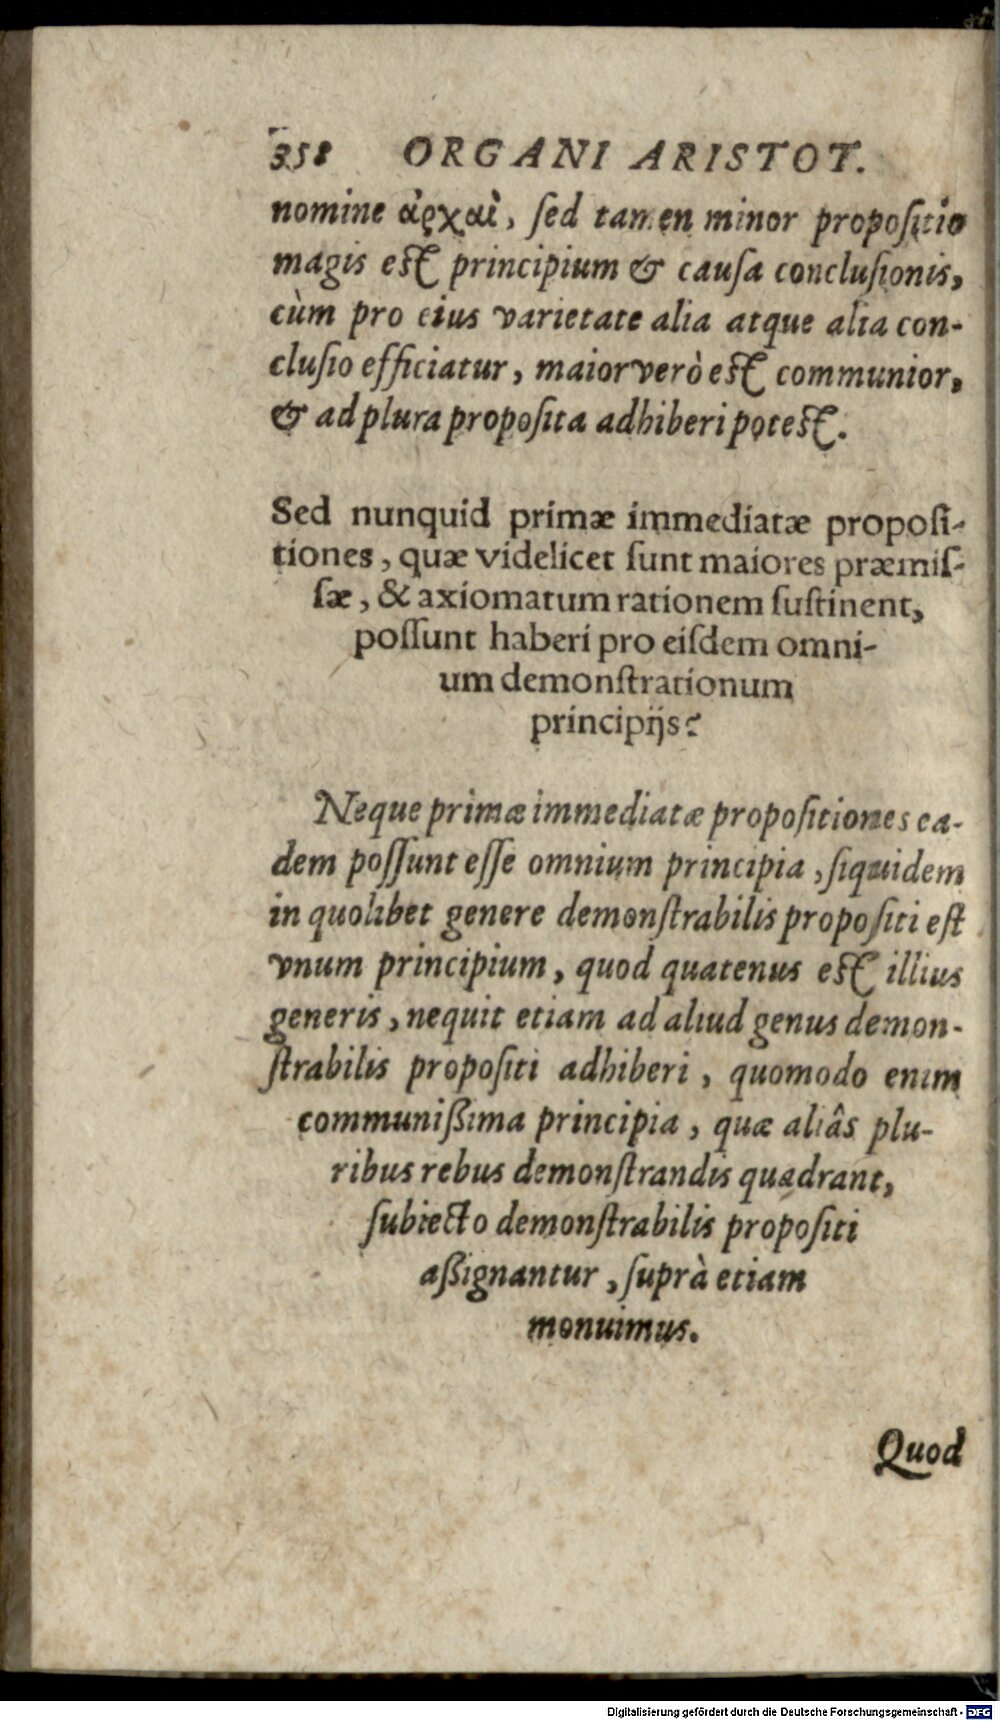 358 ORGANI ARISTOT.
nomine ἀρχαὶ, ſed tamen minor propoſitio
magis eſt principium & cauſa concluſionis,
cùm pro eius varietate alia atque alia con-
cluſio efficiatur, maior verò eſt communior,
& ad plura propoſita adhiberi poteſt.
Sed nunquid primæ immediatæ propoſi-
tiones, quæ videlicet ſunt maiores præmiſ-
ſæ, & axiomatum rationem ſuſtinent,
poſſunt haberi pro eiſdem omni-
um demonſtrationum
principijs?
Neque primæ immediatæ propoſitiones ea-
dem poſſunt eſſe omnium principia, ſiquidem
in quolibet genere demonſtrabilis propoſiti eſt
vnum principium, quod quatenus eſt illius
generis, nequit etiam ad aliud genus demon-
ſtrabilis propoſiti adhiberi, quomodo enim
communißima principia, quæ aliâs plu-
ribus rebus demonſtrandis quadrant,
ſubiecto demonſtrabilis propoſiti
aßignantur, ſuprà etiam
monuimus.
Quod
Digitalisierung gefördert durch die Deutsche Forschungsgemeinschaft - DFG